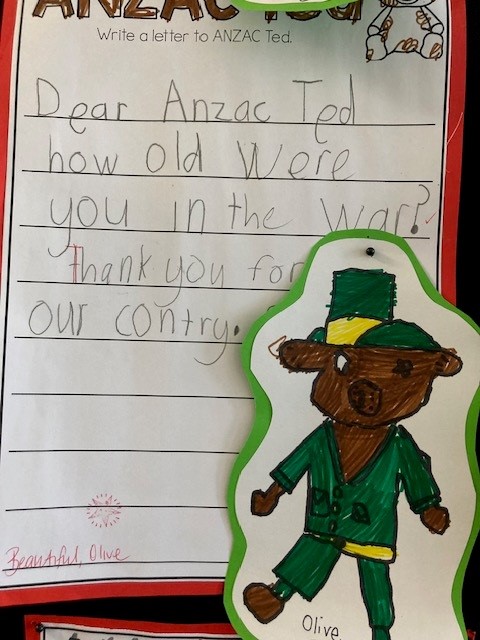 ANZAC Ted
Write a letter to ANZAC Ted.
Dear Anzac Ted
how old Were
you in the war?
Thank you for
our contry.
Beautiful, Olive
Olive